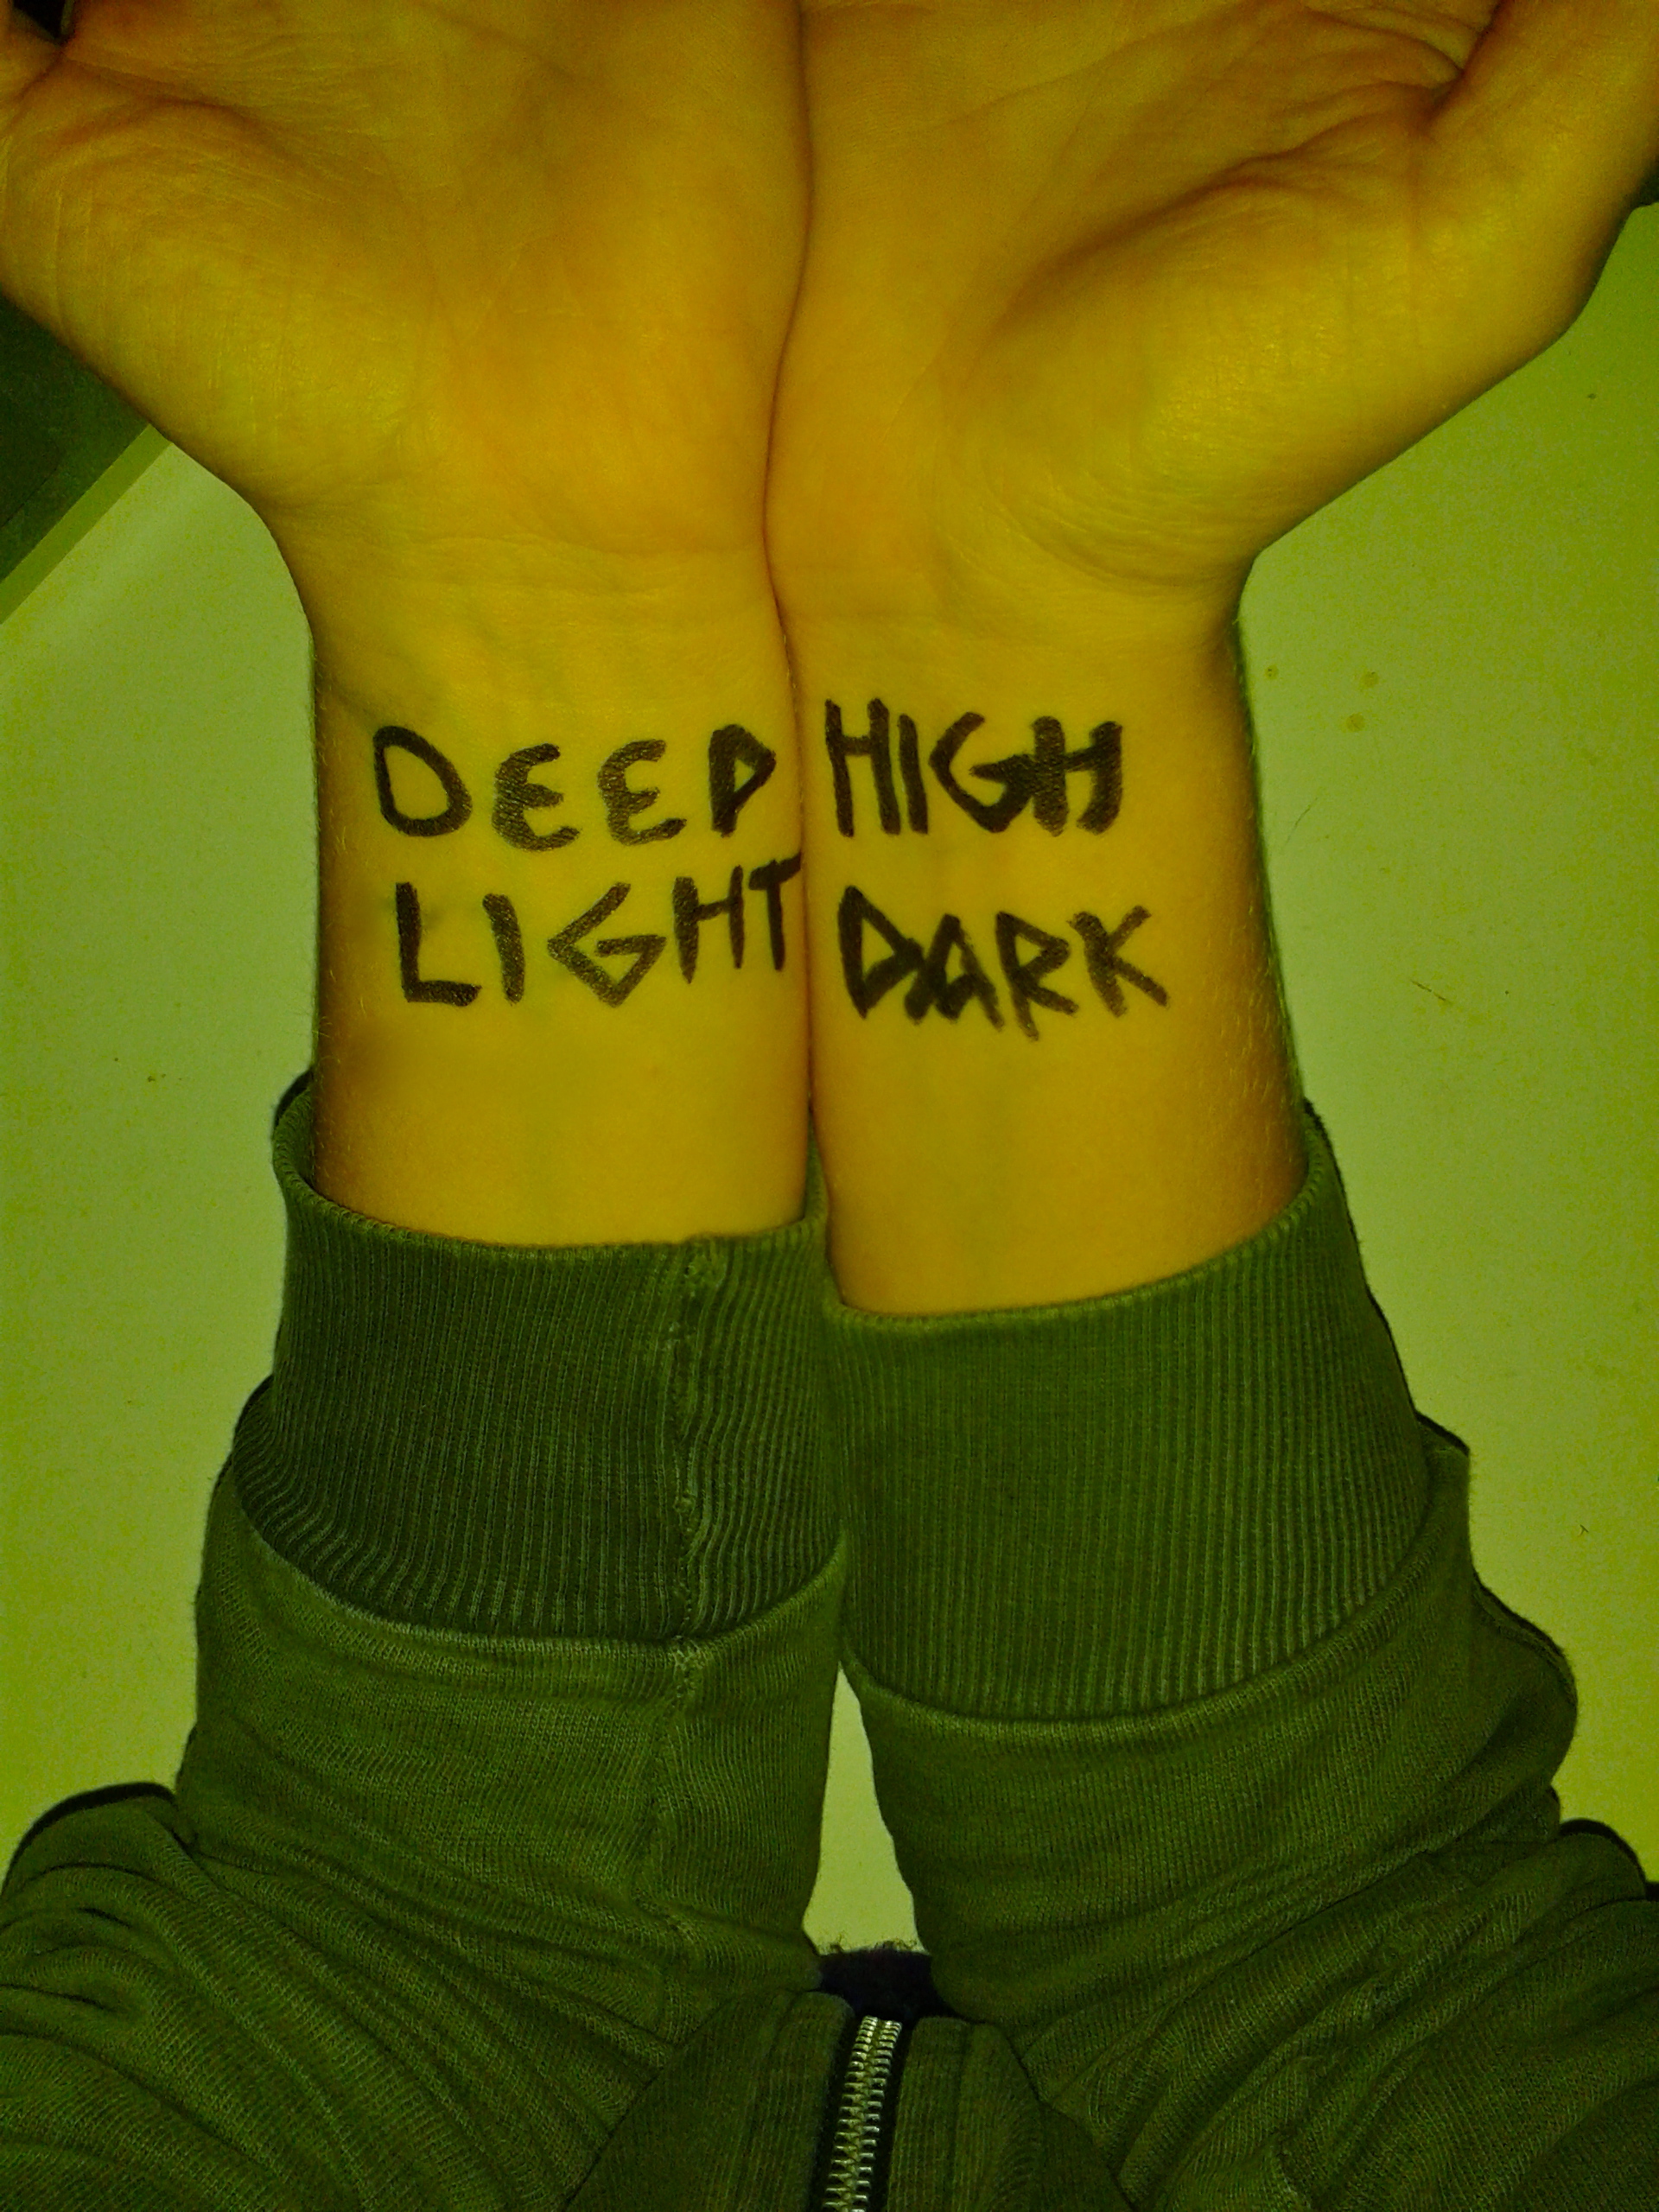 DEEP HIGH
LIGHT DARK